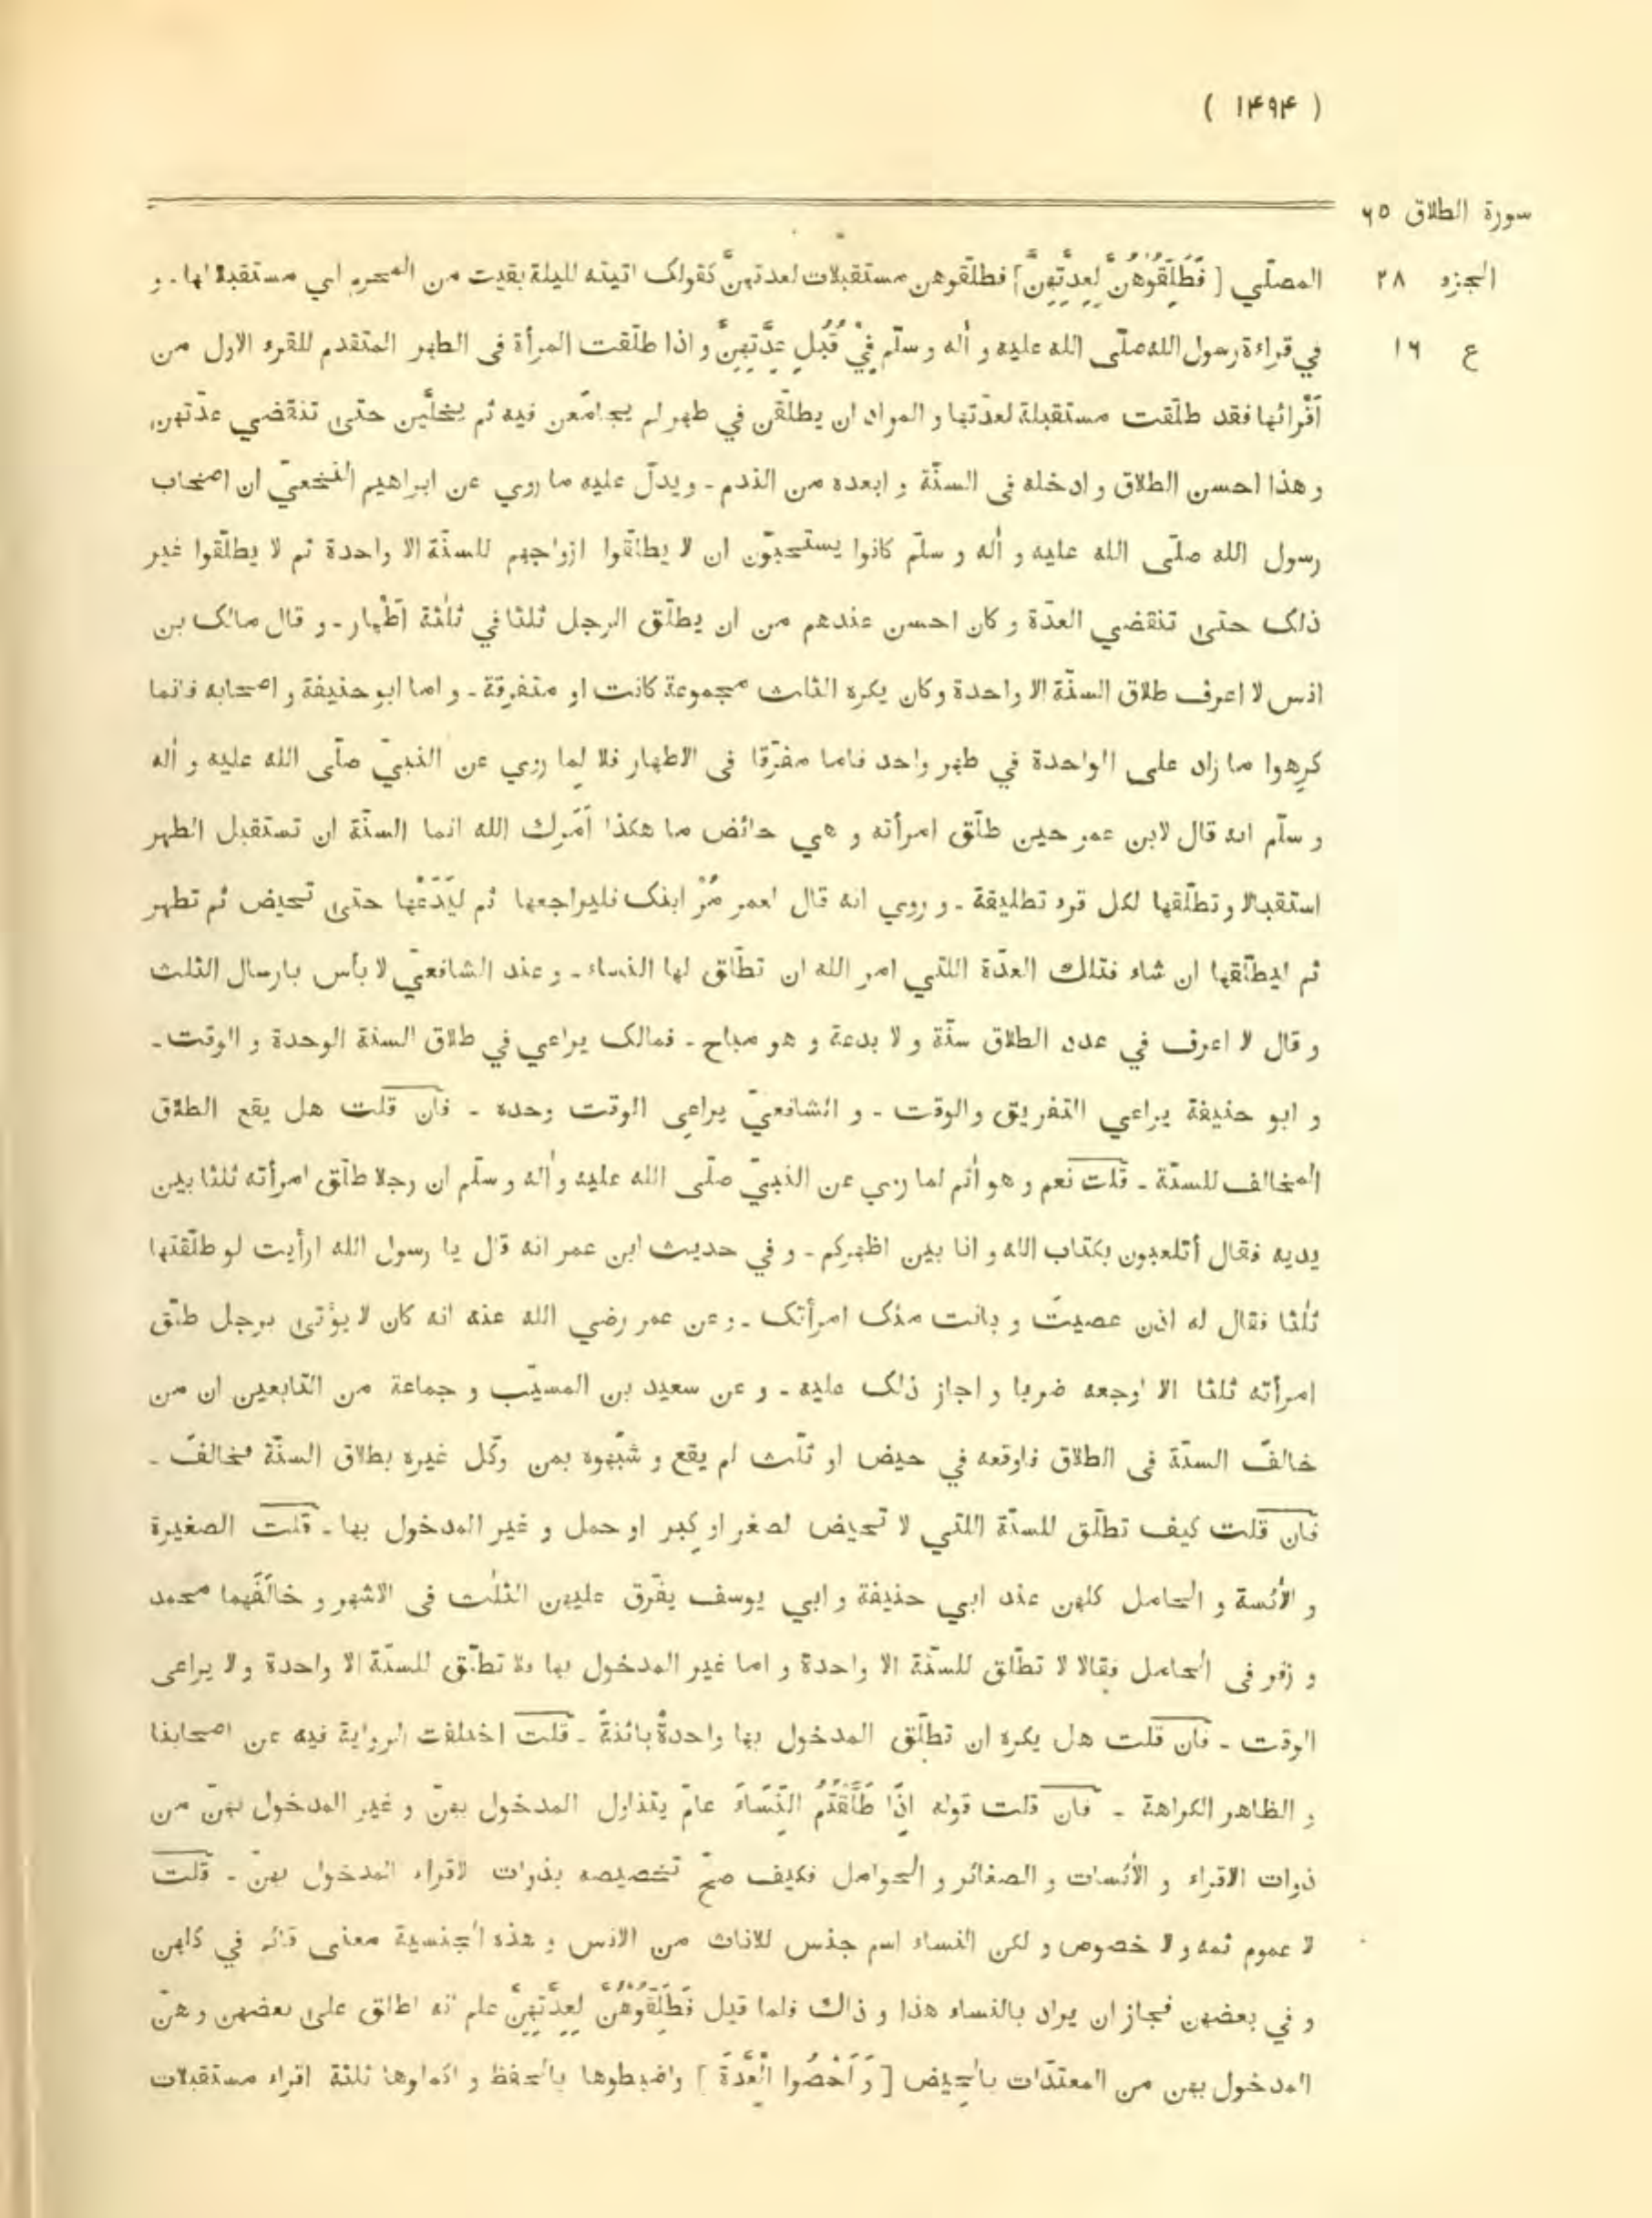 ( ۱۴۹۴ )
سورة الطلاق ۶۵
الجزء ۲۸
ع ۱۶
المصلّي [ فَطَلِّقُوهُنَّ لِعِدَّتِهِنَّ ] فطلّقوهن مستقبلات لعدتهنّ كقولک اتيته لليلة بقيت من المحرم اي مستقبلا لها - و
في قراءة رسول الله صلّى الله عليه و أله و سلّم فِيْ قُبُلِ عِدَّتِهِنَّ و اذا طلّقت المرأة فى الطهر المتقدم للقرء الاول من
اَقْرائها فقد طلّقت مستقبلة لعدّتها و المراد ان يطلّقن في طهر لم يجامَعن فيه ثم يخلَّين حتى تنقضي عدّتهن
و هذا احسن الطلاق و ادخله فى السنّة و ابعده من الندم - ويدلّ عليه ما روي عن ابراهيم النخعيّ ان اصحاب
رسول الله صلّى الله عليه و أله و سلّم كانوا يستحبّون ان لا يطلّقوا ازواجهم للسنّة الا واحدة ثم لا يطلّقوا غير
ذلک حتى تنقضي العدّة و كان احسن عندهم من ان يطلّق الرجل ثلثا في ثلٰثة اَطْهار - و قال مالک بن
انس لا اعرف طلاق السنّة الا واحدة وكان يكره الثلث مجموعة كانت او متفرقة - و اما ابو حنيفة و اصحابه فانما
كرهوا ما زاد على الواحدة في طهر واحد فاما مفرّقا فى الاطهار فلا لِما روي عن النبيّ صلّى الله عليه و أله
و سلّم انه قال لابن عمر حين طلّق امرأته و هي حائض ما هكذا اَمَرك الله انما السنّة ان تستقبل الطهر
استقبالا و تطلّقها لكل قرء تطليقة - و روي انه قال لعمر مُرْ ابنک فليراجعها ثم ليَدَعْها حتى تحيض ثم تطهر
ثم ليطلّقها ان شاء فتلك العدّة اللتي امر الله ان تطلّق لها النساء - و عند الشافعيّ لا بأس بارسال الثلث
و قال لا اعرف في عدد الطلاق سنّة و لا بدعة و هو مباح - فمالک يراعي في طلاق السنة الوحدة و الوقت -
و ابو حنيفة يراعي التفريق والوقت - و الشافعيّ يراعى الوقت وحده - فان قلت هل يقع الطلاق
المخالف للسنّة - قلت نعم و هو أثم لما روي عن النبيّ صلّى الله عليه و أله و سلّم ان رجلا طلّق امرأته ثلثا بين
يديه فقال أتلعبون بكتاب الله و انا بين اظهركم - و في حديث ابن عمر انه قال يا رسول الله ارأيت لو طلّقتها
ثلٰثا فقال له اذن عصيتَ و بانت منک امرأتک - وعن عمر رضي الله عنه انه كان لا يؤتى برجل طلّق
امرأته ثلثا الا اوجعه ضربا و اجاز ذلک عليه - و عن سعيد بن المسيّب و جماعة من التابعين ان من
خالفَ السنّة فى الطلاق فاوقعه في حيض او ثلّث لم يقع و شبّهوه بمن وكّل غيره بطلاق السنّة فخالف -
فان قلت كيف تطلّق للسنّة اللتي لا تحيض لصغر او كِبر او حمل و غير المدخول بها - قلت الصغيرة
و الأئسة و الحامل كلهن عند ابي حنيفة و ابي يوسف يفرّق عليهن الثلث فى الاشهر و خالَفَهما محمد
و زفر فى الحامل فقالا لا تطلّق للسنّة الا واحدة و اما غير المدخول بها فلا تطلّق للسنّة الا واحدة و لا يراعى
الوقت - فان قلت هل يكره ان تطلّق المدخول بها واحدةً بائنةً - قلت اختلفت الرواية فيه عن اصحابنا
و الظاهر الكراهة - فان قلت قوله اِذَا طَلَّقْتُمُ النِّسَاءَ عامّ يتناول المدخول بهنّ و غير المدخول بهنّ من
ذوات الاقراء و الأئسات و الصغائر و الحوامل فكيف صحّ تخصيصه بذوات الاقراء المدخول بهنّ - قلت
لا عموم ثمه و لا خصوص و لكن النساء اسم جنس للاناث من الانس و هذه الجنسية معنى قائم في كلهن
و في بعضهن فجاز ان يراد بالنساء هذا و ذاك فلما قيل فَطَلِّقُوهُنَّ لِعِدَّتِهِنَّ علم انه اطلق على بعضهن و هنّ
المدخول بهن من المعتدّات بالحِيض [ وَ اَحْصُوا الْعِدَّةَ ] واضبطوها بالحفظ و اكملوها ثلثة اقراء مستقبلات